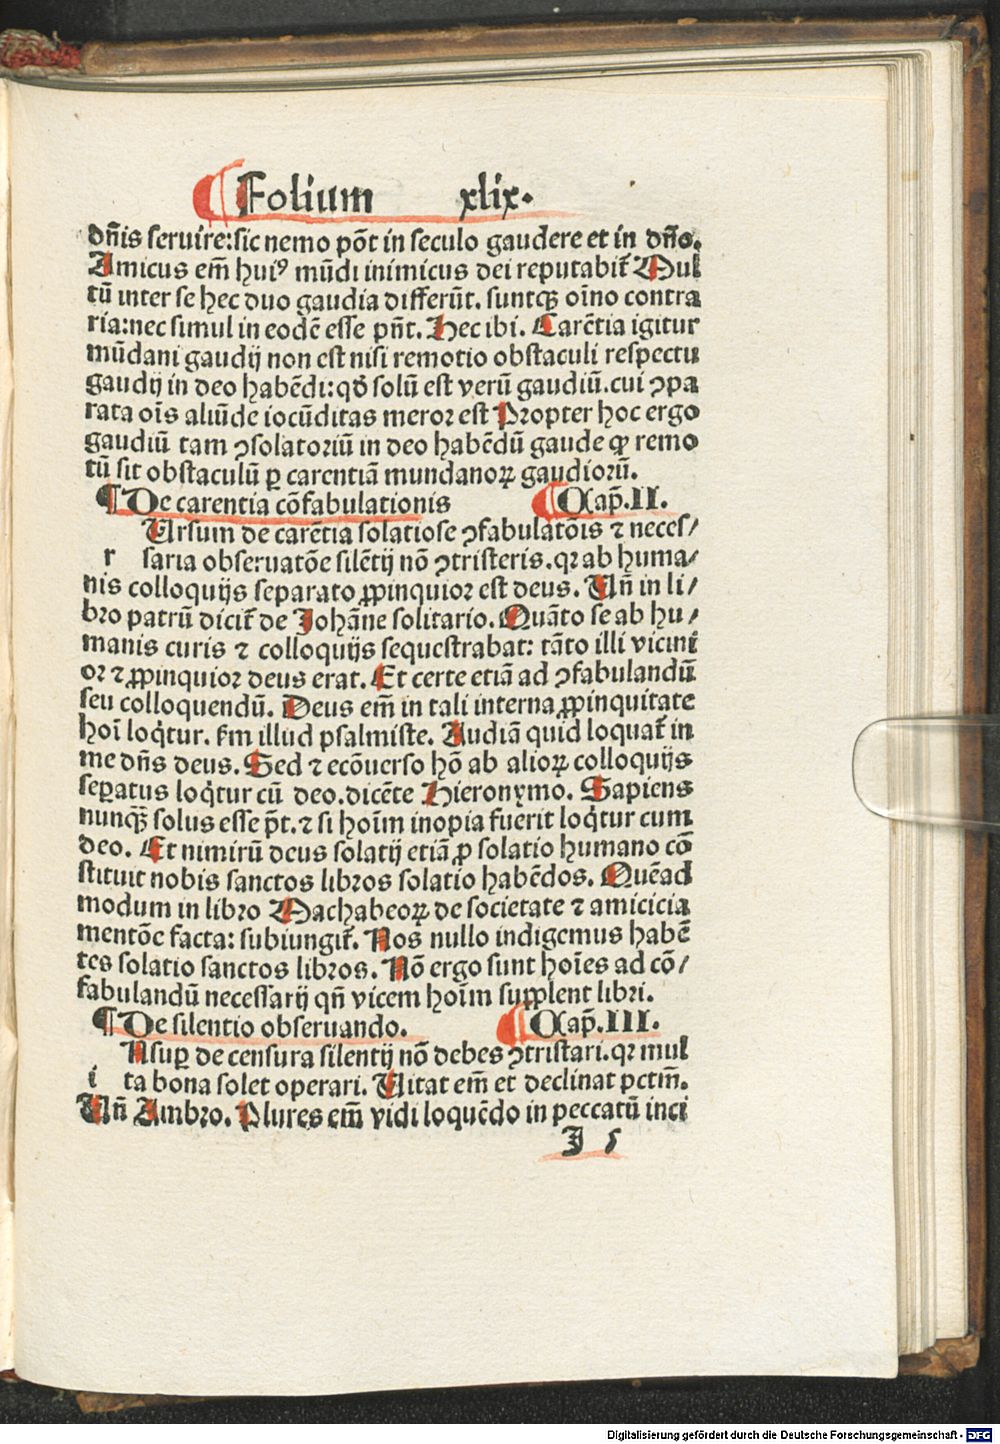 ¶ Folium xlix.
dn̄is seruire: sic nemo pōt in seculo gaudere et in dn̄o.
Amicus em̄ huiꝰ mūdi inimicus dei reputabit᷑ Mul
tū inter se hec duo gaudia differūt. suntqꝫ oīno contra
ria: nec simul in eodē esse pn̄t. Hec ibi. Carētia igitur
mūdani gaudij non est nisi remotio obstaculi respectu
gaudij in deo habēdi: qd̓ solū est verū gaudiū. cui ꝯpa
rata oīs aliūde iocūditas meror est Propter hoc ergo
gaudiū tam ꝯsolatoriū in deo habēdū gaude ꝙ remo
tū sit obstaculū ꝑ carentiā mundanoꝝ gaudiorū.
¶ De carentia cōfabulationis ¶ Cap̄. II.
Ursum de carētia solatiose ꝯfabulatōis ⁊ neces/
r saria obseruatōe silētij nō ꝯtristeris. qꝛ ab huma/
nis colloquijs separato ꝓpinquior est deus. Un̄ in li/
bro patrū dicit᷑ de Johāne solitario. Quāto se ab hu/
manis curis ⁊ colloquijs sequestrabat: tāto illi vicini
or ⁊ ꝓpinquior deus erat. Et certe etiā ad ꝯfabulandū
seu colloquendū. Deus em̄ in tali interna ꝓpinquitate
hoī loq̇tur. ẜm illud psalmiste. Audiā quid loquat᷑ in
me dn̄s deus. Sed ⁊ ecōuerso hō ab alioꝝ colloquijs
seꝑatus loq̇tur cū deo. dicēte Hieronymo. Sapiens
nunqꝫ̄ solus esse p̄t. ⁊ si hoīm inopia fuerit loq̇tur cum
deo. Et nimirū deus solatij etiā ꝓ solatio humano cō
stituit nobis sanctos libros solatio habēdos. Quēad
modum in libro Machabeoꝝ de societate ⁊ amicicia
mentōe facta: subiungit᷑. Nos nullo indigemus habē
tes solatio sanctos libros. Nō ergo sunt hoīes ad cō/
fabulandū necessarij qn̄ vicem hoīm supplent libri.
¶ De silentio obseruando. ¶ Cap̄. III.
Nsuꝑ de censura silentij nō debes ꝯtristari. qꝛ mul
i ta bona solet operari. Uitat em̄ et declinat pctm̄.
Un̄ Ambro. Plures em̄ vidi loquēdo in peccatū inci
J 5
Digitalisierung gefördert durch die Deutsche Forschungsgemeinschaft - DFG